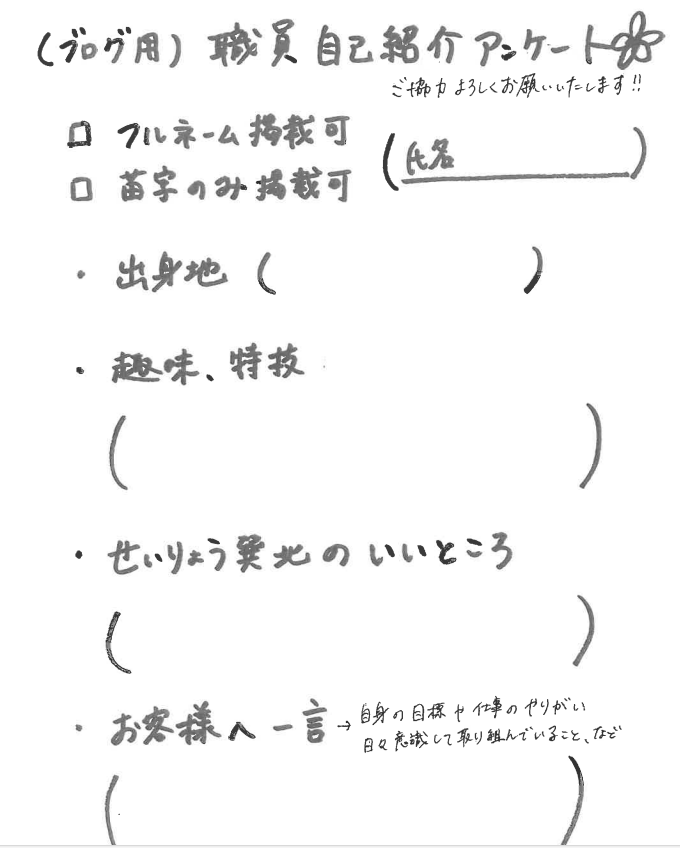 (ブログ用) 職員 自己紹介 アンケート
ご協力 よろしくお願いいたします!!
□ フルネーム掲載可
(氏名 )
□ 苗字のみ掲載可
・出身地 ( )
・趣味、特技
( )
・せいりょう巽北の いいところ
( )
・お客様へ一言 → 自身の目標や仕事のやりがい
日々意識して取り組んでいること、など
( )